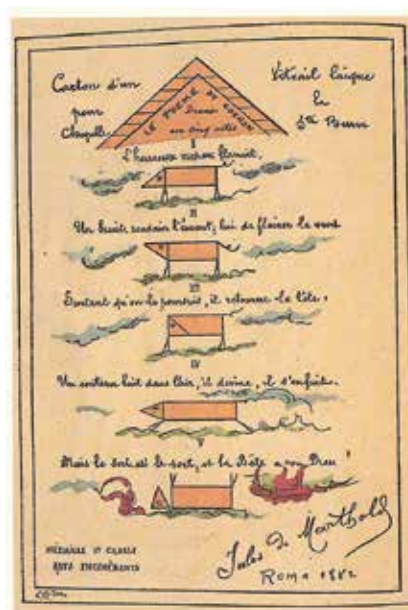 Carton d'un
pour
Chapelle
Vitrail laïque
la
Ste Burn
LE POEME DU COCHON
Drame
en cinq actes
I
L'heureux cochon flanait.
II
Un bruit soudain l'émeut; lui de flairer le vent
III
Sentant qu'on le poursuit, il retourne la tête.
IV
Un couteau luit dans l'air, il devine, il s'enfuit.
V
Mais le sort est le sort, et la Bête a vu Dieu!
MÉDAILLE 1e CLASSE
ARTS INCOHÉRENTS
Jules de Marthold
ROMA 1882